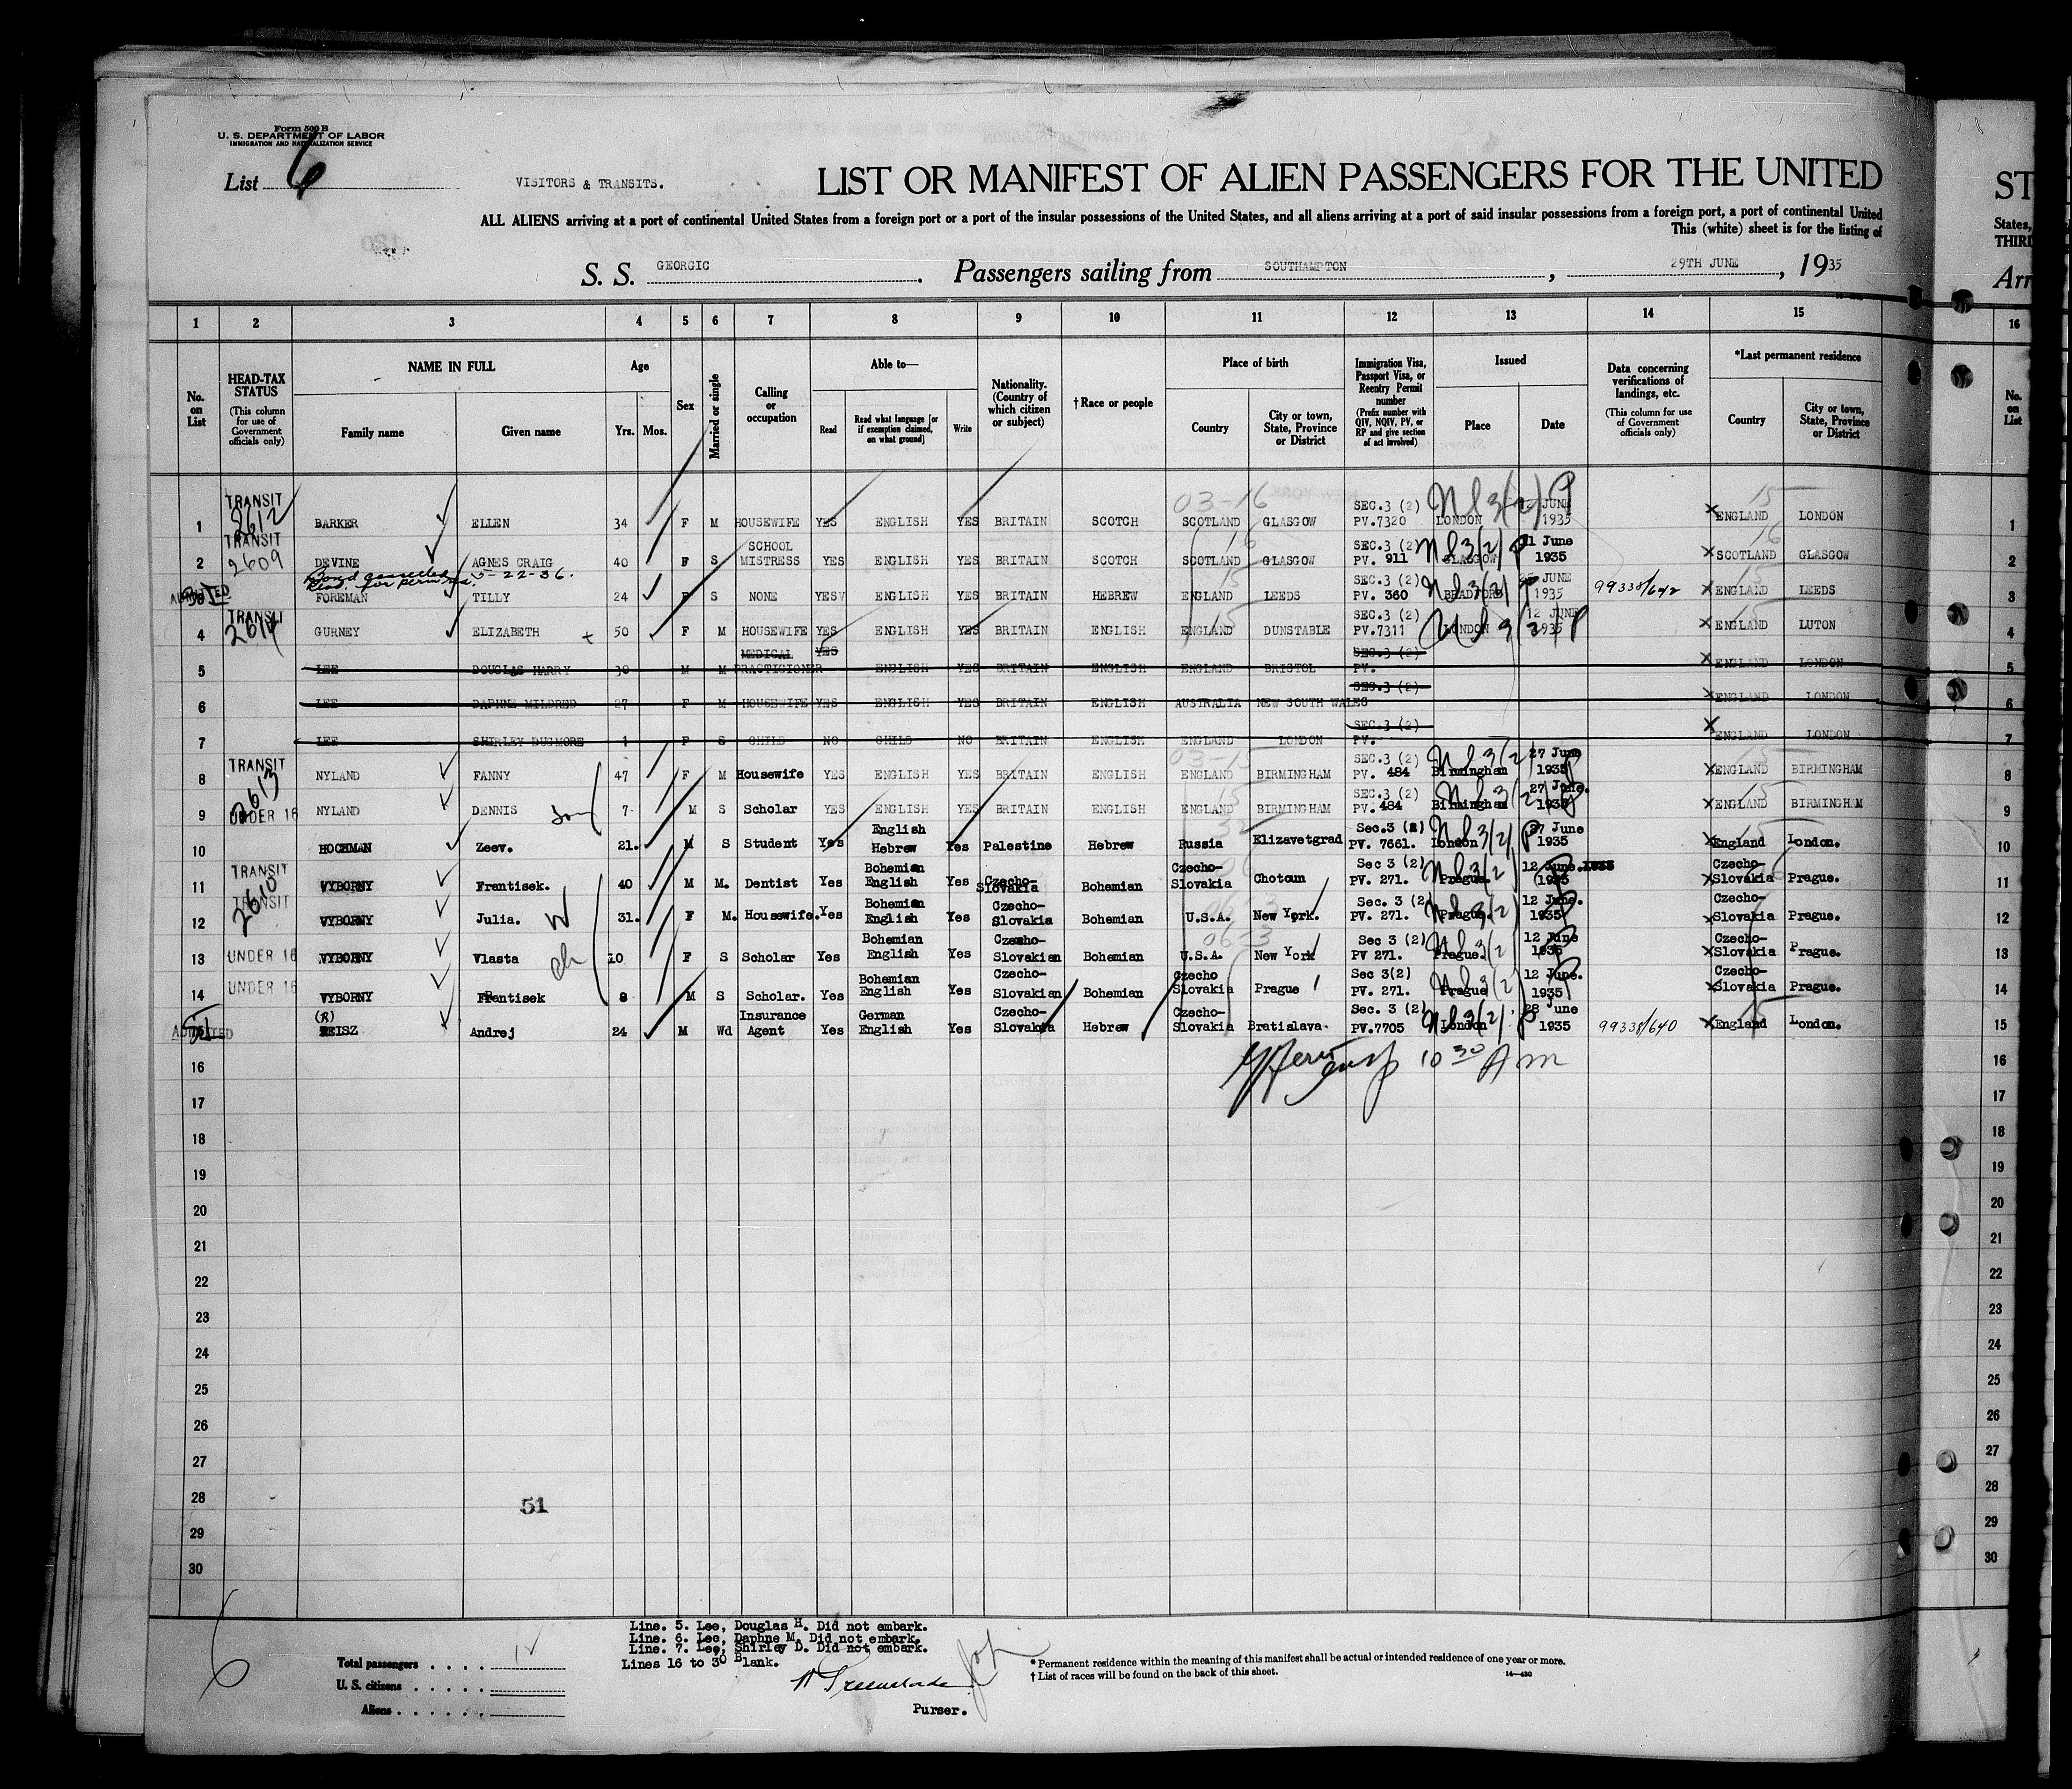 Form 500 B
U. S. DEPARTMENT OF LABOR
IMMIGRATION AND NATURALIZATION SERVICE
List 6
VISITORS & TRANSITS.
LIST OR MANIFEST OF ALIEN PASSENGERS FOR THE UNITED
ST
ALL ALIENS arriving at a port of continental United States from a foreign port or a port of the insular possessions of the United States, and all aliens arriving at a port of said insular possessions from a foreign port, a port of continental United
States,
This (white) sheet is for the listing of
THIRD
S. S. GEORGIC. Passengers sailing from SOUTHAMPTON, 29TH JUNE, 1935
Arr
1 2 3 4 5 6 7 8 9 10 11 12 13 14 15 16
No. on List
HEAD-TAX STATUS (This column for use of Government officials only)
NAME IN FULL
Family name Given name
Age Yrs. Mos.
Sex
Married or single
Calling or occupation
Able to— Read Read what language [or if exemption claimed, on what ground] Write
Nationality. (Country of which citizen or subject)
†Race or people
Place of birth Country City or town, State, Province or District
Immigration Visa, Passport Visa, or Reentry Permit number (Prefix number with QIV, NQIV, PV, or RP and give section of act involved)
Issued Place Date
Data concerning verifications of landings, etc. (This column for use of Government officials only)
*Last permanent residence Country City or town, State, Province or District
No. on List
03-16 15
1 TRANSIT 2612 BARKER ELLEN 34 F M HOUSEWIFE YES ENGLISH YES BRITAIN SCOTCH SCOTLAND GLASGOW SEC.3 (2) PV.7320 LONDON JUNE 1935 ENGLAND LONDON 1
2 TRANSIT 2609 DEVINE AGNES CRAIG 40 F S SCHOOL MISTRESS YES ENGLISH YES BRITAIN SCOTCH SCOTLAND GLASGOW SEC.3 (2) PV. 911 GLASGOW 21 June 1935 SCOTLAND GLASGOW 2
Bond cancelled 5-22-36.
3 ADMITTED FOREMAN TILLY 24 F S NONE YES ENGLISH YES BRITAIN HEBREW ENGLAND LEEDS SEC.3 (2) PV. 360 BRADFORD JUNE 1935 99338/642 ENGLAND LEEDS 3
4 TRANSIT 2614 GURNEY ELIZABETH 50 F M HOUSEWIFE YES ENGLISH YES BRITAIN ENGLISH ENGLAND DUNSTABLE SEC.3 (2) PV.7311 LONDON 12 JUNE 1935 ENGLAND LUTON 4
5 LEE DOUGLAS HARRY 30 M M MEDICAL PRACTICIONER YES ENGLISH YES BRITAIN ENGLISH ENGLAND BRISTOL SEC.3 (2) PV. ENGLAND LONDON 5
6 LEE DAPHNE MILDRED 27 F M HOUSEWIFE YES ENGLISH YES BRITAIN ENGLISH AUSTRALIA NEW SOUTH WALES SEC.3 (2) ENGLAND LONDON 6
7 LEE SHIRLEY DUGMORE 1 F S CHILD NO CHILD NO BRITAIN ENGLISH ENGLAND LONDON SEC.3 (2) PV. ENGLAND LONDON 7
03-15
8 TRANSIT 2613 NYLAND FANNY 47 F M Housewife YES ENGLISH YES BRITAIN ENGLISH ENGLAND BIRMINGHAM SEC.3 (2) PV. 484 Birmingham 27 June 1935 ENGLAND BIRMINGHAM 8
9 UNDER 16 NYLAND DENNIS son 7 M S Scholar YES ENGLISH YES BRITAIN ENGLISH ENGLAND BIRMINGHAM SEC.3 (2) PV. 484 Birmingham 27 June. 1935 ENGLAND BIRMINGHAM 9
10 HOCHMAN Zeev. 21. M S Student Yes English Hebrew Yes Palestine Hebrew Russia Elizavetgrad Sec.3 (2) PV. 7661. London 27 June 1935 England London. 10
11 TRANSIT 2610 VYBORNY Frantisek. 40 M M. Dentist Yes Bohemian English Yes Czecho-Slovakia Bohemian Czecho-Slovakia Chotoun Sec 3 (2) PV. 271. Prague. 12 June.1935 1935 Czecho-Slovakia Prague. 11
12 TRANSIT VYBORNY Julia. W 31. F M. Housewife. Yes Bohemian English Yes Czecho-Slovakia Bohemian U.S.A. New York. Sec. 3 (2) PV. 271. Prague. 12 June. 1935 Czecho-Slovakia Prague. 12
06-3
13 UNDER 16 VYBORNY Vlasta ch 10 F S Scholar Yes Bohemian English Yes Czecho-Slovakian Bohemian U.S.A. New York Sec 3 (2) PV 271. Prague. 12 June 1935 Czecho-Slovakia Prague. 13
14 UNDER 16 VYBORNY Frantisek 8 M S Scholar. Yes Bohemian English Yes Czecho-Slovakian Bohemian Czecho Slovakia Prague Sec 3(2) PV. 271. Prague 12 June. 1935 Czecho-Slovakia Prague. 14
15 ADMITTED (R) REISZ Andrej 24 M Wd Insurance Agent Yes German English Yes Czecho-Slovakia Hebrew Czecho-Slovakia Bratislava. Sec. 3 (2) PV.7705 London 28 June 1935 99338/640 England London. 15
16 10 30 Am 16
17 17
18 18
19 19
20 20
21 21
22 22
23 23
24 24
25 25
26 26
27 27
28 51 28
29 29
30 30
Line. 5. Lee, Douglas H. Did not embark.
Line. 6. Lee, Daphne M. Did not embark.
Line. 7. Lee, Shirley D. Did not embark.
Lines 16 to 30 Blank.
Total passengers
U. S. citizens
Aliens
Purser.
* Permanent residence within the meaning of this manifest shall be actual or intended residence of one year or more.
† List of races will be found on the back of this sheet.
14—430
6